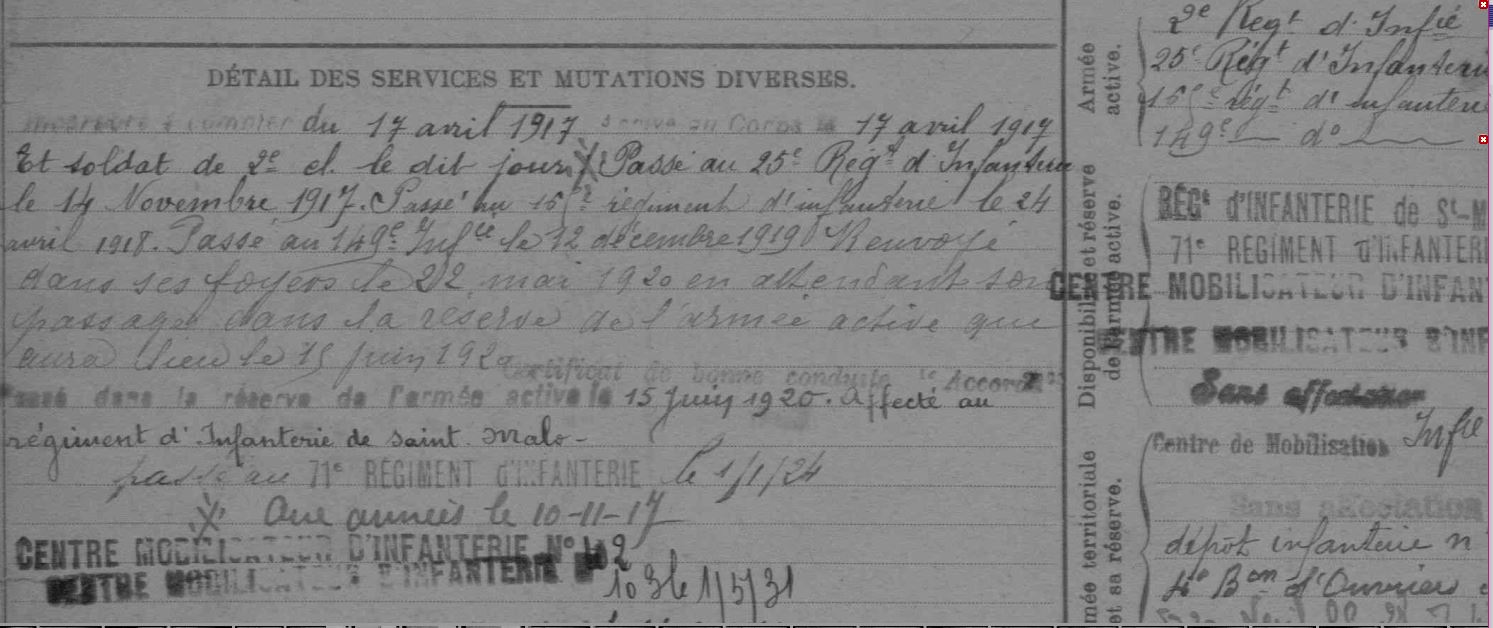 DÉTAIL DES SERVICES ET MUTATIONS DIVERSES.
Incorporé à compter du 17 avril 1917. Arrivé au Corps le 17 avril 1917
Et soldat de 2e cl. le dit jour. X Passé au 25e Régt d'Infanterie
le 14 Novembre 1917. Passé au régiment d'infanterie le 24
avril 1918. Passé au 149e Infie le 12 décembre 1919 Renvoyé
dans ses foyers le 22 mai 1920 en attendant son
passage dans la réserve de l'armée active que
aura lieu le 15 juin 1920
Certificat de bonne conduite "Accordé"
Passé dans la réserve de l'armée active le 15 Juin 1920. Affecté au
régiment d'Infanterie de Saint. Malo-
passé au 71e RÉGIMENT D'INFANTERIE le 1/1/24
X Aux armées le 10-11-17
CENTRE MOBILISATEUR D'INFANTERIE No
CENTRE MOBILISATEUR D'INFANTERIE
103 le 1/5/31
Armée active.
2e Regt d'Infie
25e Régt d'Infanterie
régt d'infanterie
149e — do —
Disponibilité et réserve de l'armée active.
RÉGt d'INFANTERIE de St-M
71e RÉGIMENT D'INFANTERI
CENTRE MOBILISATEUR D'INFAN
CENTRE MOBILISATEUR D'INF
Sans affectation
mée territoriale et sa réserve.
Centre de Mobilisation Infie
Sans affectation
dépôt infanterie n
4e Bon d'Ouvriers